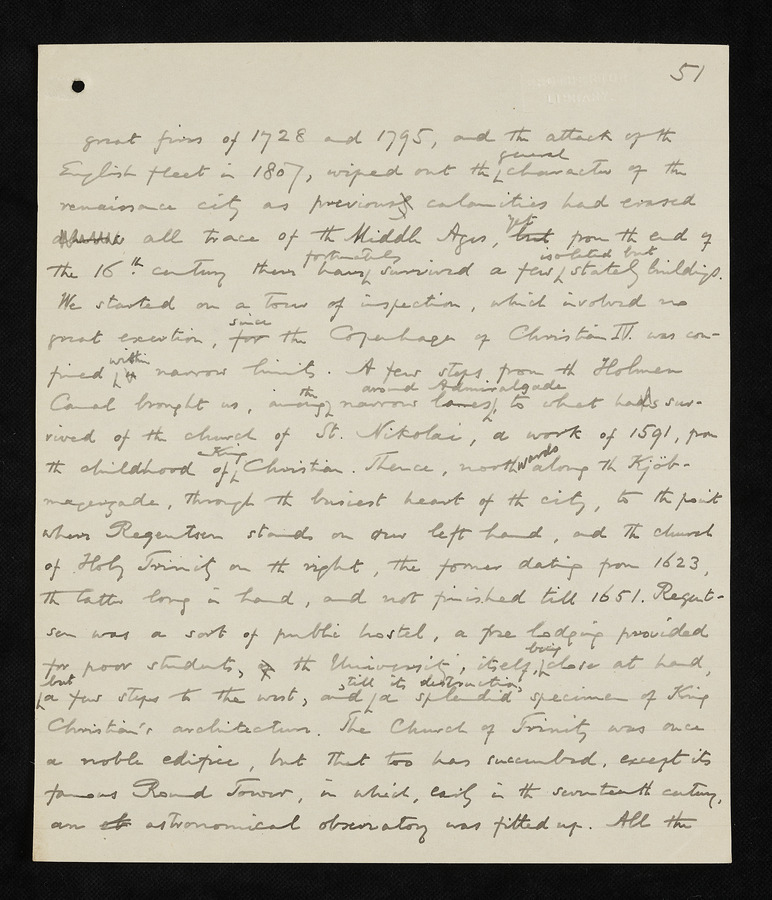 51
great fires of 1728 and 1795, and the attack of the
English fleet in 1807, wiped out the general character of the
renaissance city as previous calamities had erased
all trace of the Middle Ages, yet from the end of
the 16th century there fortunately have survived a few isolated but stately buildings.
We started on a tour of inspection, which involved no
great exertion, since the Copenhagen of Christian IV. was con-
fined within narrow limits. A few steps from the Holmen
Canal brought us, among the narrow lanes around Admiralgade, to what has sur-
vived of the church of St. Nikolai, a work of 1591, from
the childhood of King Christian. Thence, northwards along the Kjöb-
magergade, through the busiest heart of the city, to the point
where Regentsen stands on our left hand, and the church
of Holy Trinity on the right, the former dating from 1623,
the latter long in hand, and not finished till 1651. Regent-
sen was a sort of public hostel, a free lodging provided
for poor students, the University itself being close at hand,
but a few steps to the west, and, till its destruction, a splendid specimen of King
Christian's architecture. The Church of Trinity was once
a noble edifice, but that too has succumbed, except its
famous Round Tower, in which, early in the seventeenth century,
an astronomical observatory was fitted up. All the